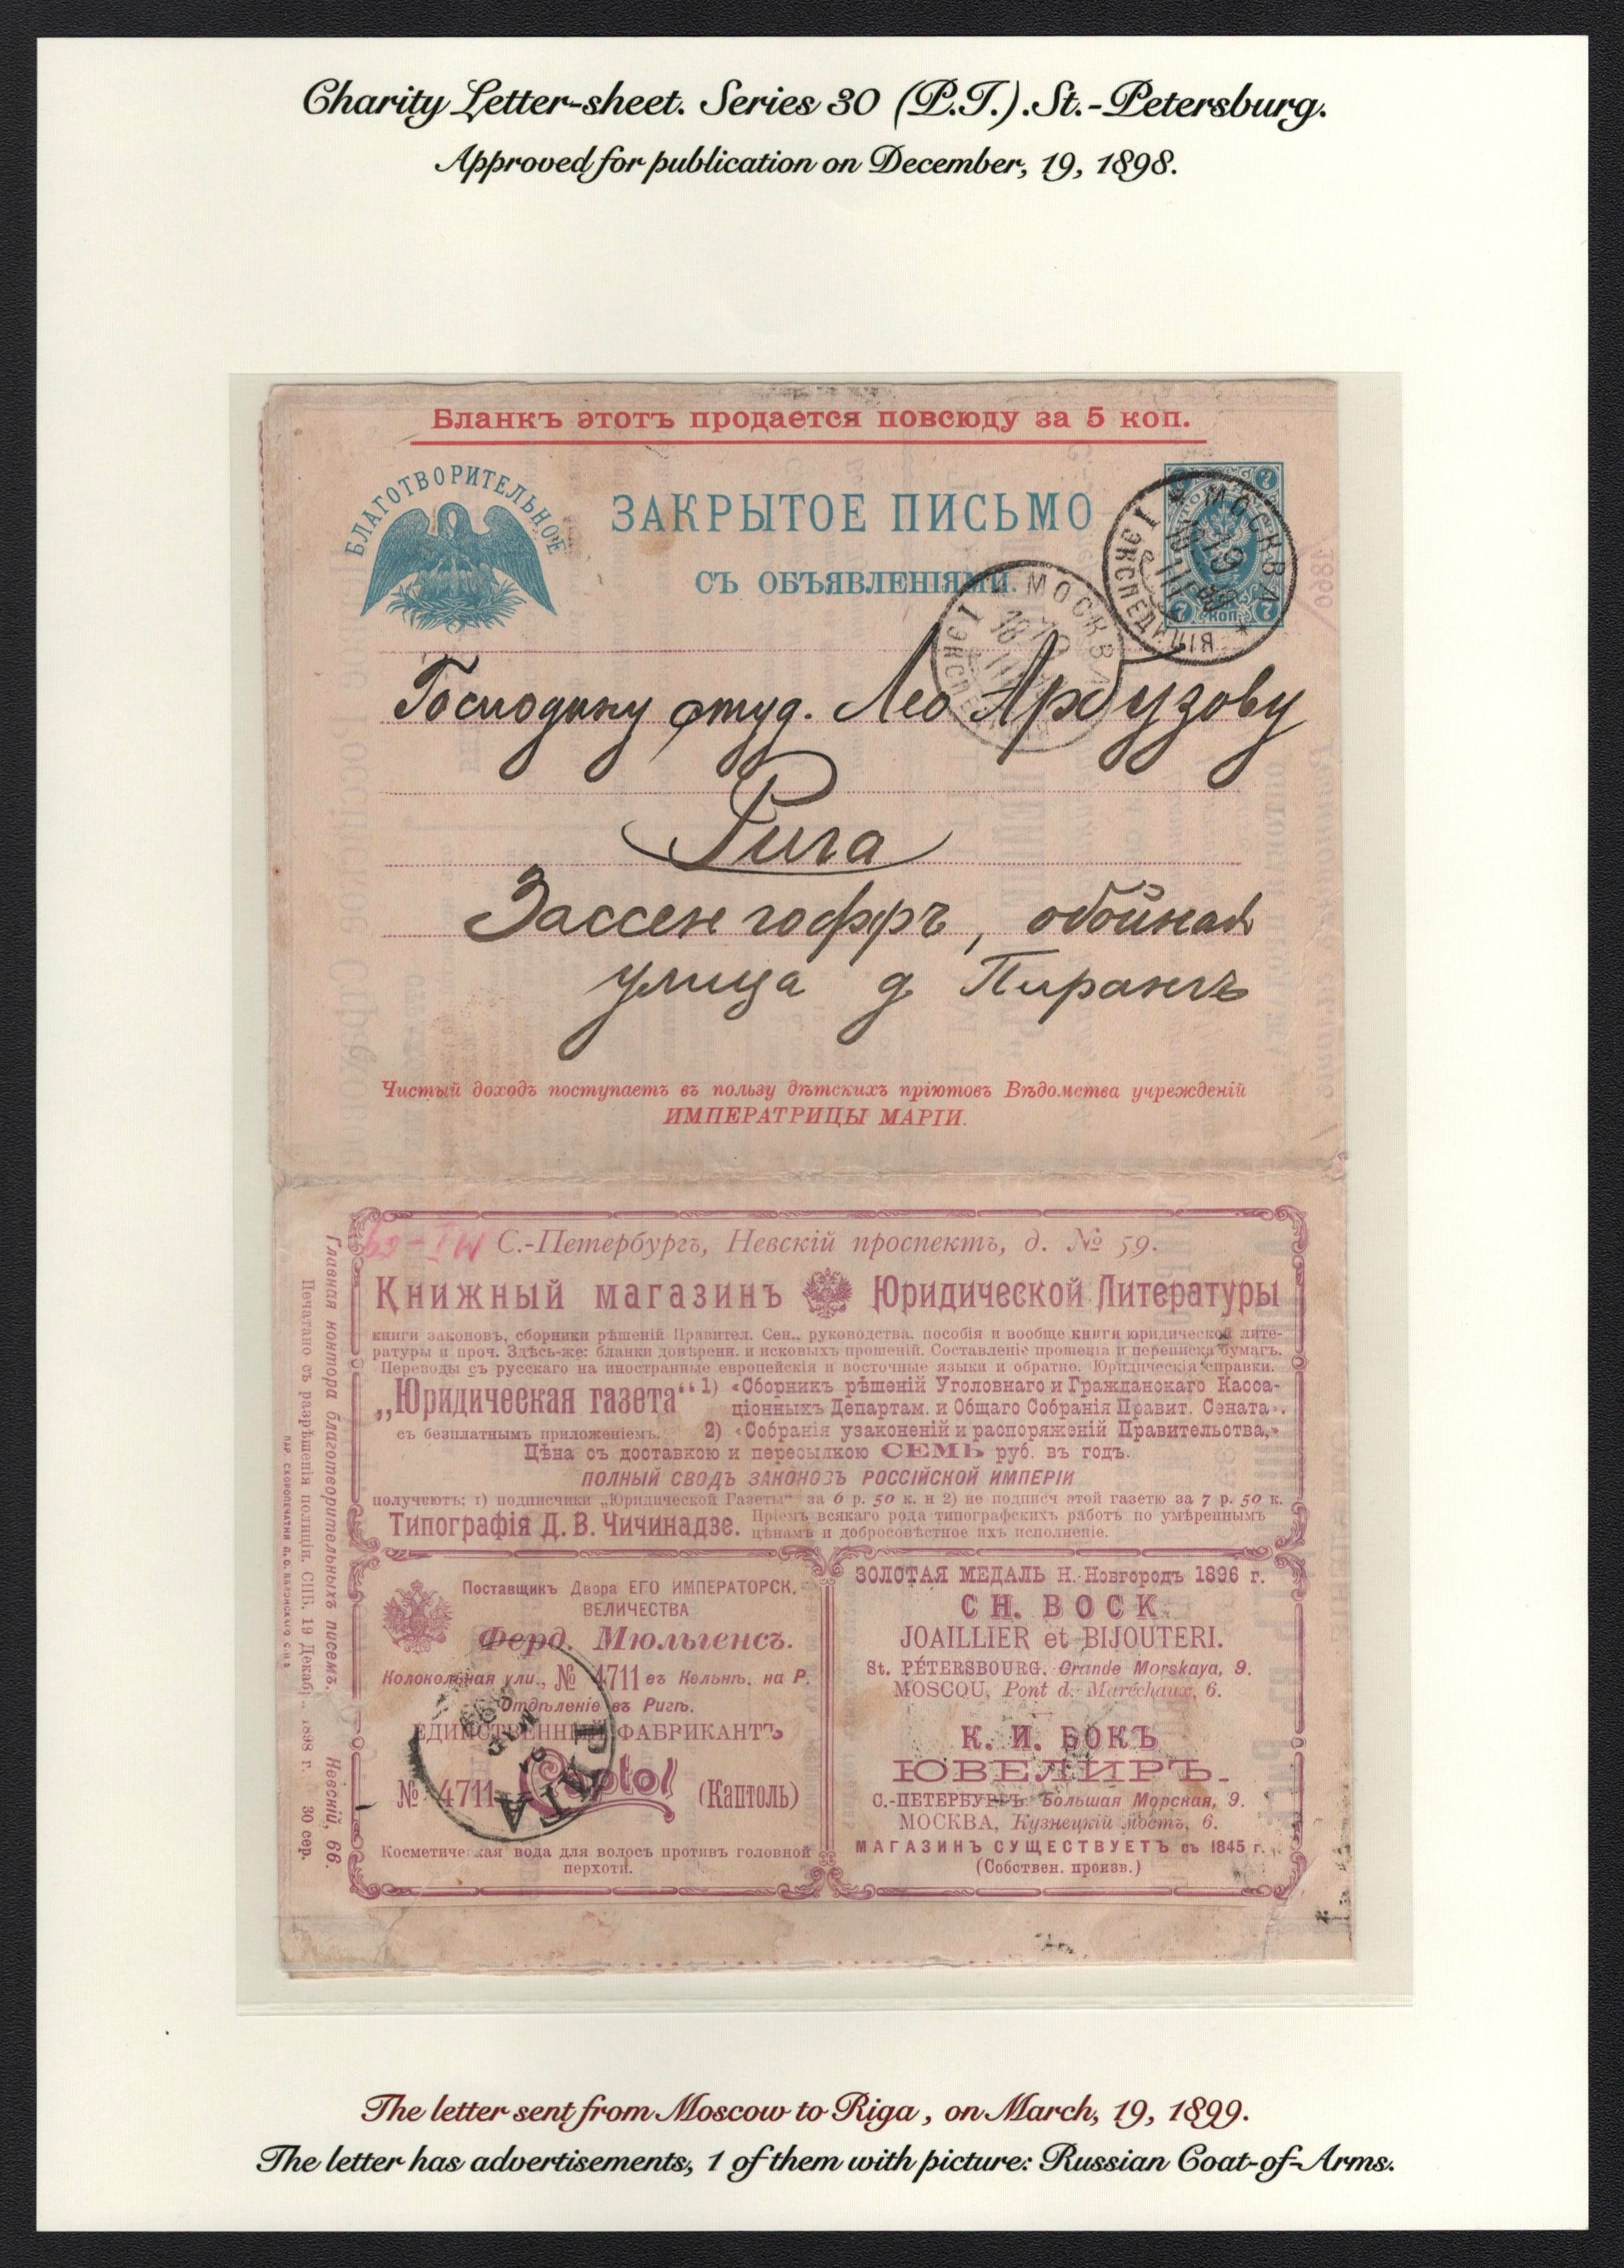 Charity Letter-sheet. Series 30 (P.T.). St.-Petersburg.
Approved for publication on December, 19, 1898.
Бланкъ этотъ продается повсюду за 5 коп.
БЛАГОТВОРИТЕЛЬНОЕ
ЗАКРЫТОЕ ПИСЬМО
СЪ ОБЪЯВЛЕНІЯМИ.
7 7
7 КОП. 7
МОСКВА
19 III
1 ЭКСПЕДИЦІЯ
МОСКВА
Господину студ. Лео Арбузову
Рига
Зассенгоффъ, обойная
улица д Пирангъ
Чистый доходъ поступаетъ въ пользу дѣтскихъ пріютовъ Вѣдомства учрежденій
ИМПЕРАТРИЦЫ МАРІИ.
С.-Петербургъ, Невскій проспектъ, д. № 59.
Книжный магазинъ Юридической Литературы
книги законовъ, сборники рѣшеній Правител. Сен., руководства, пособія и вообще книги юридической лите-
ратуры и проч. Здѣсь-же: бланки довѣренн. и исковыхъ прошеній. Составленіе прошенія и переписка бумагъ.
Переводы съ русскаго на иностранные европейскія и восточные языки и обратно. Юридическія справки.
„Юридическая газета“ 1) «Сборникъ рѣшеній Уголовнаго и Гражданскаго Касса-
ціонныхъ Департам. и Общаго Собранія Правит. Сената».
съ безплатнымъ приложеніемъ. 2) «Собранія узаконеній и распоряженій Правительства,»
Цѣна съ доставкою и пересылкою СЕМЬ руб. въ годъ.
ПОЛНЫЙ СВОДЪ ЗАКОНОВЪ РОССІЙСКОЙ ИМПЕРІИ
получеютъ: 1) подписчики „Юридической Газеты“ за 6 р. 50 к. и 2) не подписч этой газетю за 7 р. 50 к.
Типографія Д. В. Чичинадзе. Пріемъ всякаго рода типографскихъ работъ по умѣреннымъ
цѣнамъ и добросовѣстное ихъ исполненіе.
Поставщикъ Двора ЕГО ИМПЕРАТОРСК.
ВЕЛИЧЕСТВА
Ферд. Мюльгенсъ.
Колокольная ули., № 4711 въ Кельнѣ, на Р.
Отдѣленіе въ Ригѣ.
ЕДИНСТВЕННЫЙ ФАБРИКАНТЪ
№ 4711 Captol (Каптоль)
Косметическая вода для волосъ противъ головной
перхоти.
ЗОЛОТАЯ МЕДАЛЬ Н.-Новгородъ 1896 г.
CH. BOCK
JOAILLIER et BIJOUTERI.
St. PÉTERSBOURG, Grande Morskaya, 9.
MOSCOU, Pont d. Maréchaux, 6.
К. И. БОКЪ
ЮВЕЛИРЪ.
С.-ПЕТЕРБУРГЪ. Большая Морская, 9.
МОСКВА, Кузнецкій мостъ, 6.
МАГАЗИНЪ СУЩЕСТВУЕТЪ съ 1845 г.
(Собствен. произв.)
Главная контора благотворительныхъ писемъ. Невскій, 66.
Печатано съ разрѣшенія полиціи. СПБ. 19 Декабр. 1898 г. 30 сер.
The letter sent from Moscow to Riga, on March, 19, 1899.
The letter has advertisements, 1 of them with picture: Russian Coat-of-Arms.